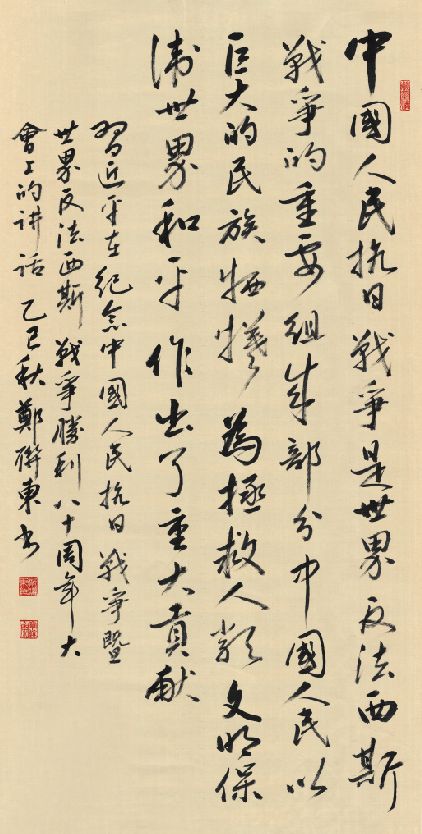 中國人民抗日戰爭是世界反法西斯
戰爭的重要組成部分中國人民以
巨大的民族牺牲為拯救人類文明保
衛世界和平作出了重大貢献
習近平在紀念中國人民抗日戰爭暨
世界反法西斯戰爭勝利八十周年大
會上的讲话 乙巳秋鄭聯東书